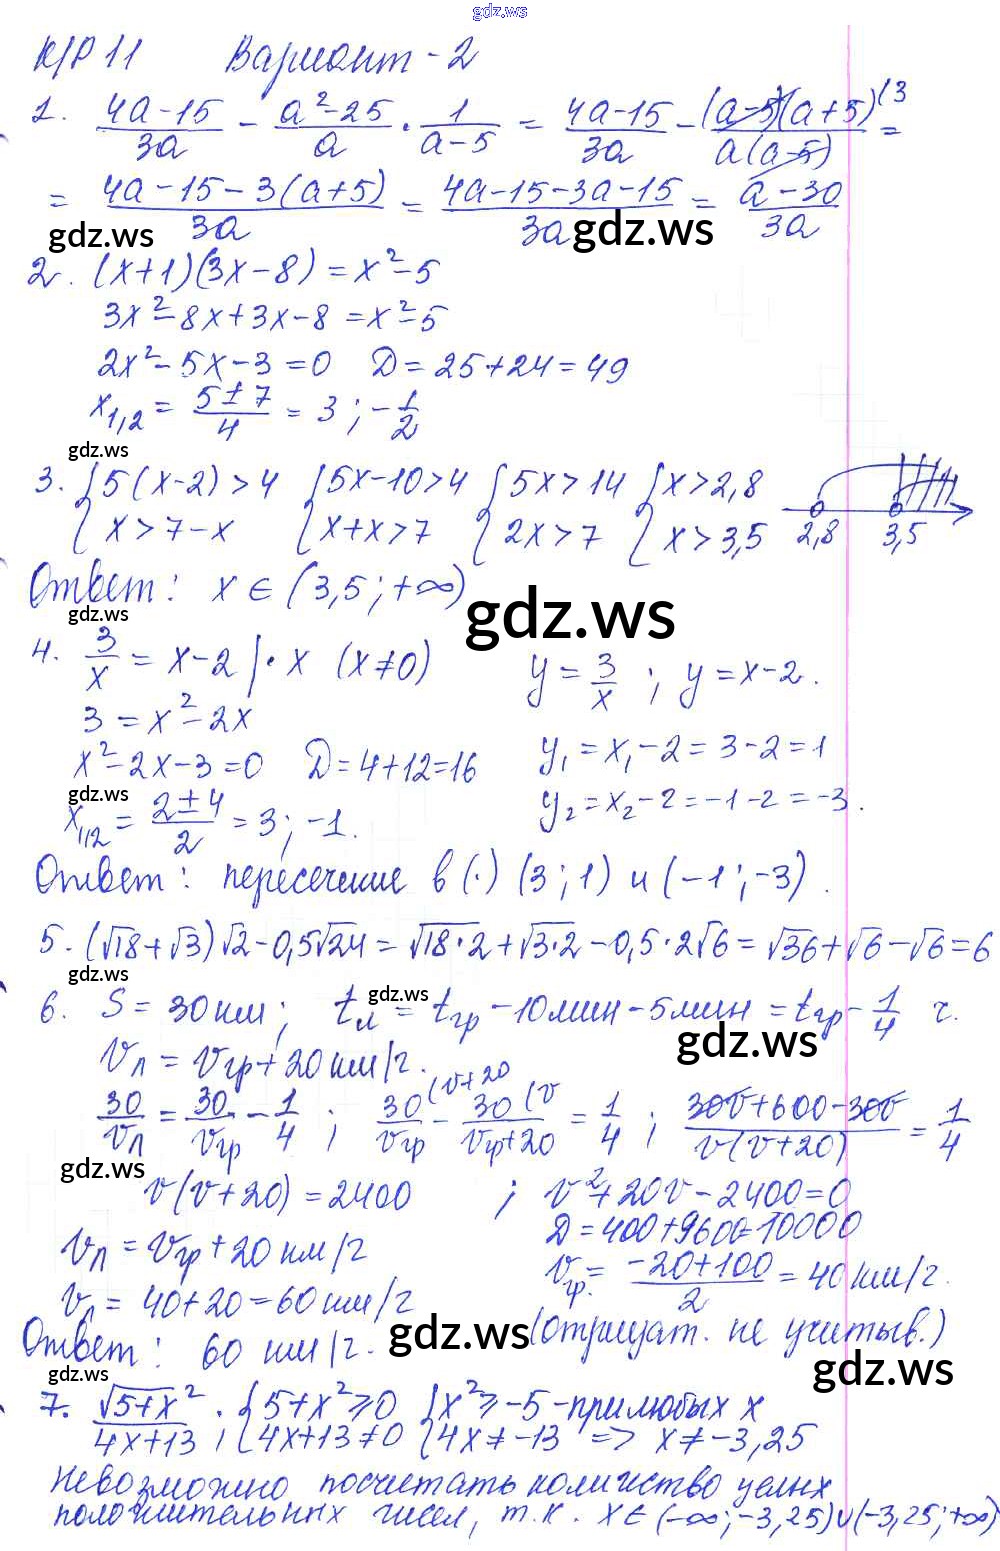 gdz.ws
К/Р 11 Вариант - 2
1. (4a-15)/(3a) - (a²-25)/a · 1/(a-5) = (4a-15)/(3a) - ((a-5)(a+5)⁽³)/(a(a-5)) =
= (4a-15-3(a+5))/(3a) = (4a-15-3a-15)/(3a) = (a-30)/(3a)
gdz.ws gdz.ws
2. (x+1)(3x-8) = x²-5
3x²-8x+3x-8 = x²-5
2x²-5x-3=0 D=25+24=49
x₁,₂ = (5±7)/4 = 3; -1/2
gdz.ws
3. {5(x-2)>4 {5x-10>4 {5x>14 {x>2,8
{x>7-x {x+x>7 {2x>7 {x>3,5 2,8 3,5
Ответ: x∈(3,5;+∞)
gdz.ws gdz.ws
4. 3/x = x-2 |·x (x≠0) y = 3/x ; y=x-2.
3=x²-2x
x²-2x-3=0 D=4+12=16 y₁=x₁-2=3-2=1
gdz.ws
x₁,₂ = (2±4)/2 = 3; -1. y₂=x₂-2=-1-2=-3.
Ответ: пересечение в (·) (3;1) и (-1;-3).
5. (√18+√3)√2-0,5√24=√18·2+√3·2-0,5·2√6=√36+√6-√6=6
gdz.ws gdz.ws
6. S=30км; tл = tгр -10мин-5мин = tгр - 1/4 ч.
gdz.ws
Vл = Vгр+20км/ч.
30/Vл = 30/Vгр - 1/4 ; 30⁽ᵛ⁺²⁰/Vгр - 30⁽ᵛ/(Vгр+20) = 1/4 ; (30v+600-30v)/(v(v+20)) = 1/4
gdz.ws
v(v+20)=2400 ; v²+20v-2400=0
D=400+9600=10000
Vл = Vгр+20км/ч
Vгр. = (-20+100)/2 = 40км/ч.
Vл = 40+20=60км/ч
gdz.ws
Ответ: 60 км/ч. (отрицат. не учитыв.)
gdz.ws gdz.ws
7. √(5+x²)/(4x+13) ; {5+x²≥0 {x²≥-5-при любых x
{4x+13≠0 {4x≠-13 => x≠-3,25
Невозможно посчитать количество целых
положительных чисел, т.к. x∈(-∞;-3,25)∪(-3,25;+∞)